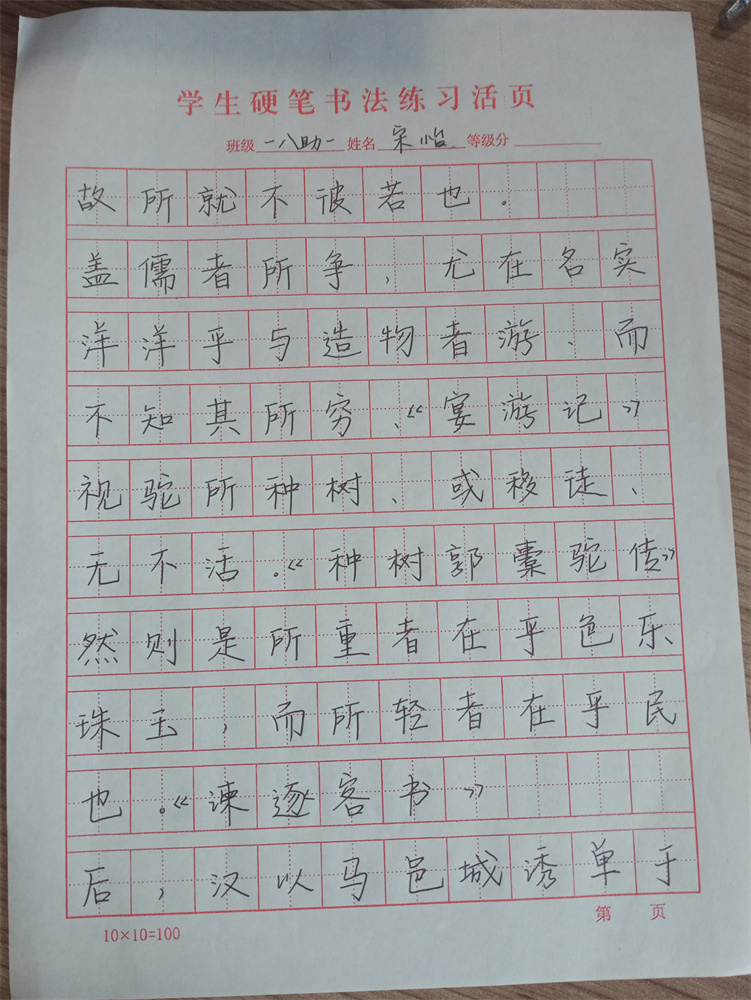 学生硬笔书法练习活页
班级 一八助一 姓名 宋怡 等级分
故所就不彼若也。
盖儒者所争,尤在名实
洋洋乎与造物者游、而
不知其所穷、《宴游记》
视驼所种树、或移徒、
无不活。《种树郭橐驼传》
然则是所重者在乎色乐
珠玉,而所轻者在乎民
也。《谏逐客书》
后,汉以马邑城诱单于
10×10=100
第 页